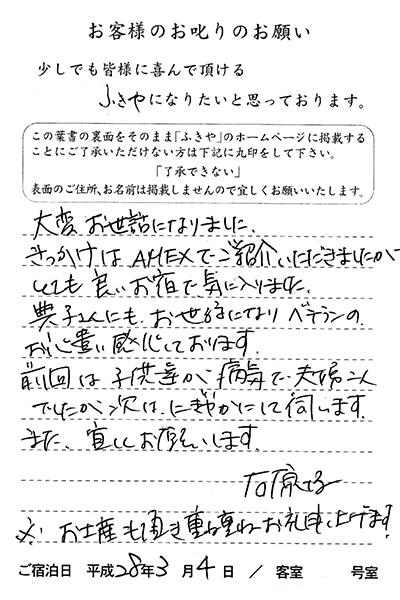 お客様のお叱りのお願い
少しでも皆様に喜んで頂ける
ふきやになりたいと思っております。
この葉書の裏面をそのまま「ふきや」のホームページに掲載する
ことにご了承いただけない方は下記に丸印をして下さい。
「了承できない」
表面のご住所、お名前は掲載しませんので宜しくお願いいたします。
大変お世話になりました、
きっかけはAMEXでご紹介いただきましたが
とても良いお宿で気に入りました、
農子さんにもお世話になりベテランの
お心遣い感心しております、
前回は子供達が病気で夫婦二人
でしたが次は、にぎやかにして伺います、
また、宜しくお願いします、
石原
※お土産も頂き重ね重ねお礼申し上げます
ご宿泊日 平成28年3月4日 / 客室 号室